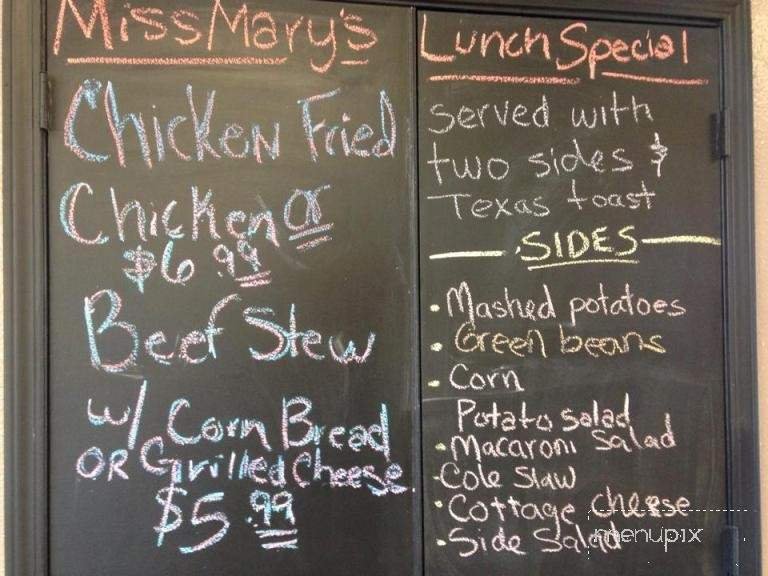 Miss Mary's
Chicken Fried
Chicken or
$6.99
Beef Stew
w/ Corn Bread
OR Grilled Cheese
$5.99
Lunch Special
served with
two sides &
Texas toast
SIDES
• Mashed potatoes
• Green beans
• Corn
Potato salad
• Macaroni Salad
• Cole Slaw
• Cottage cheese
• Side Salad
menupix